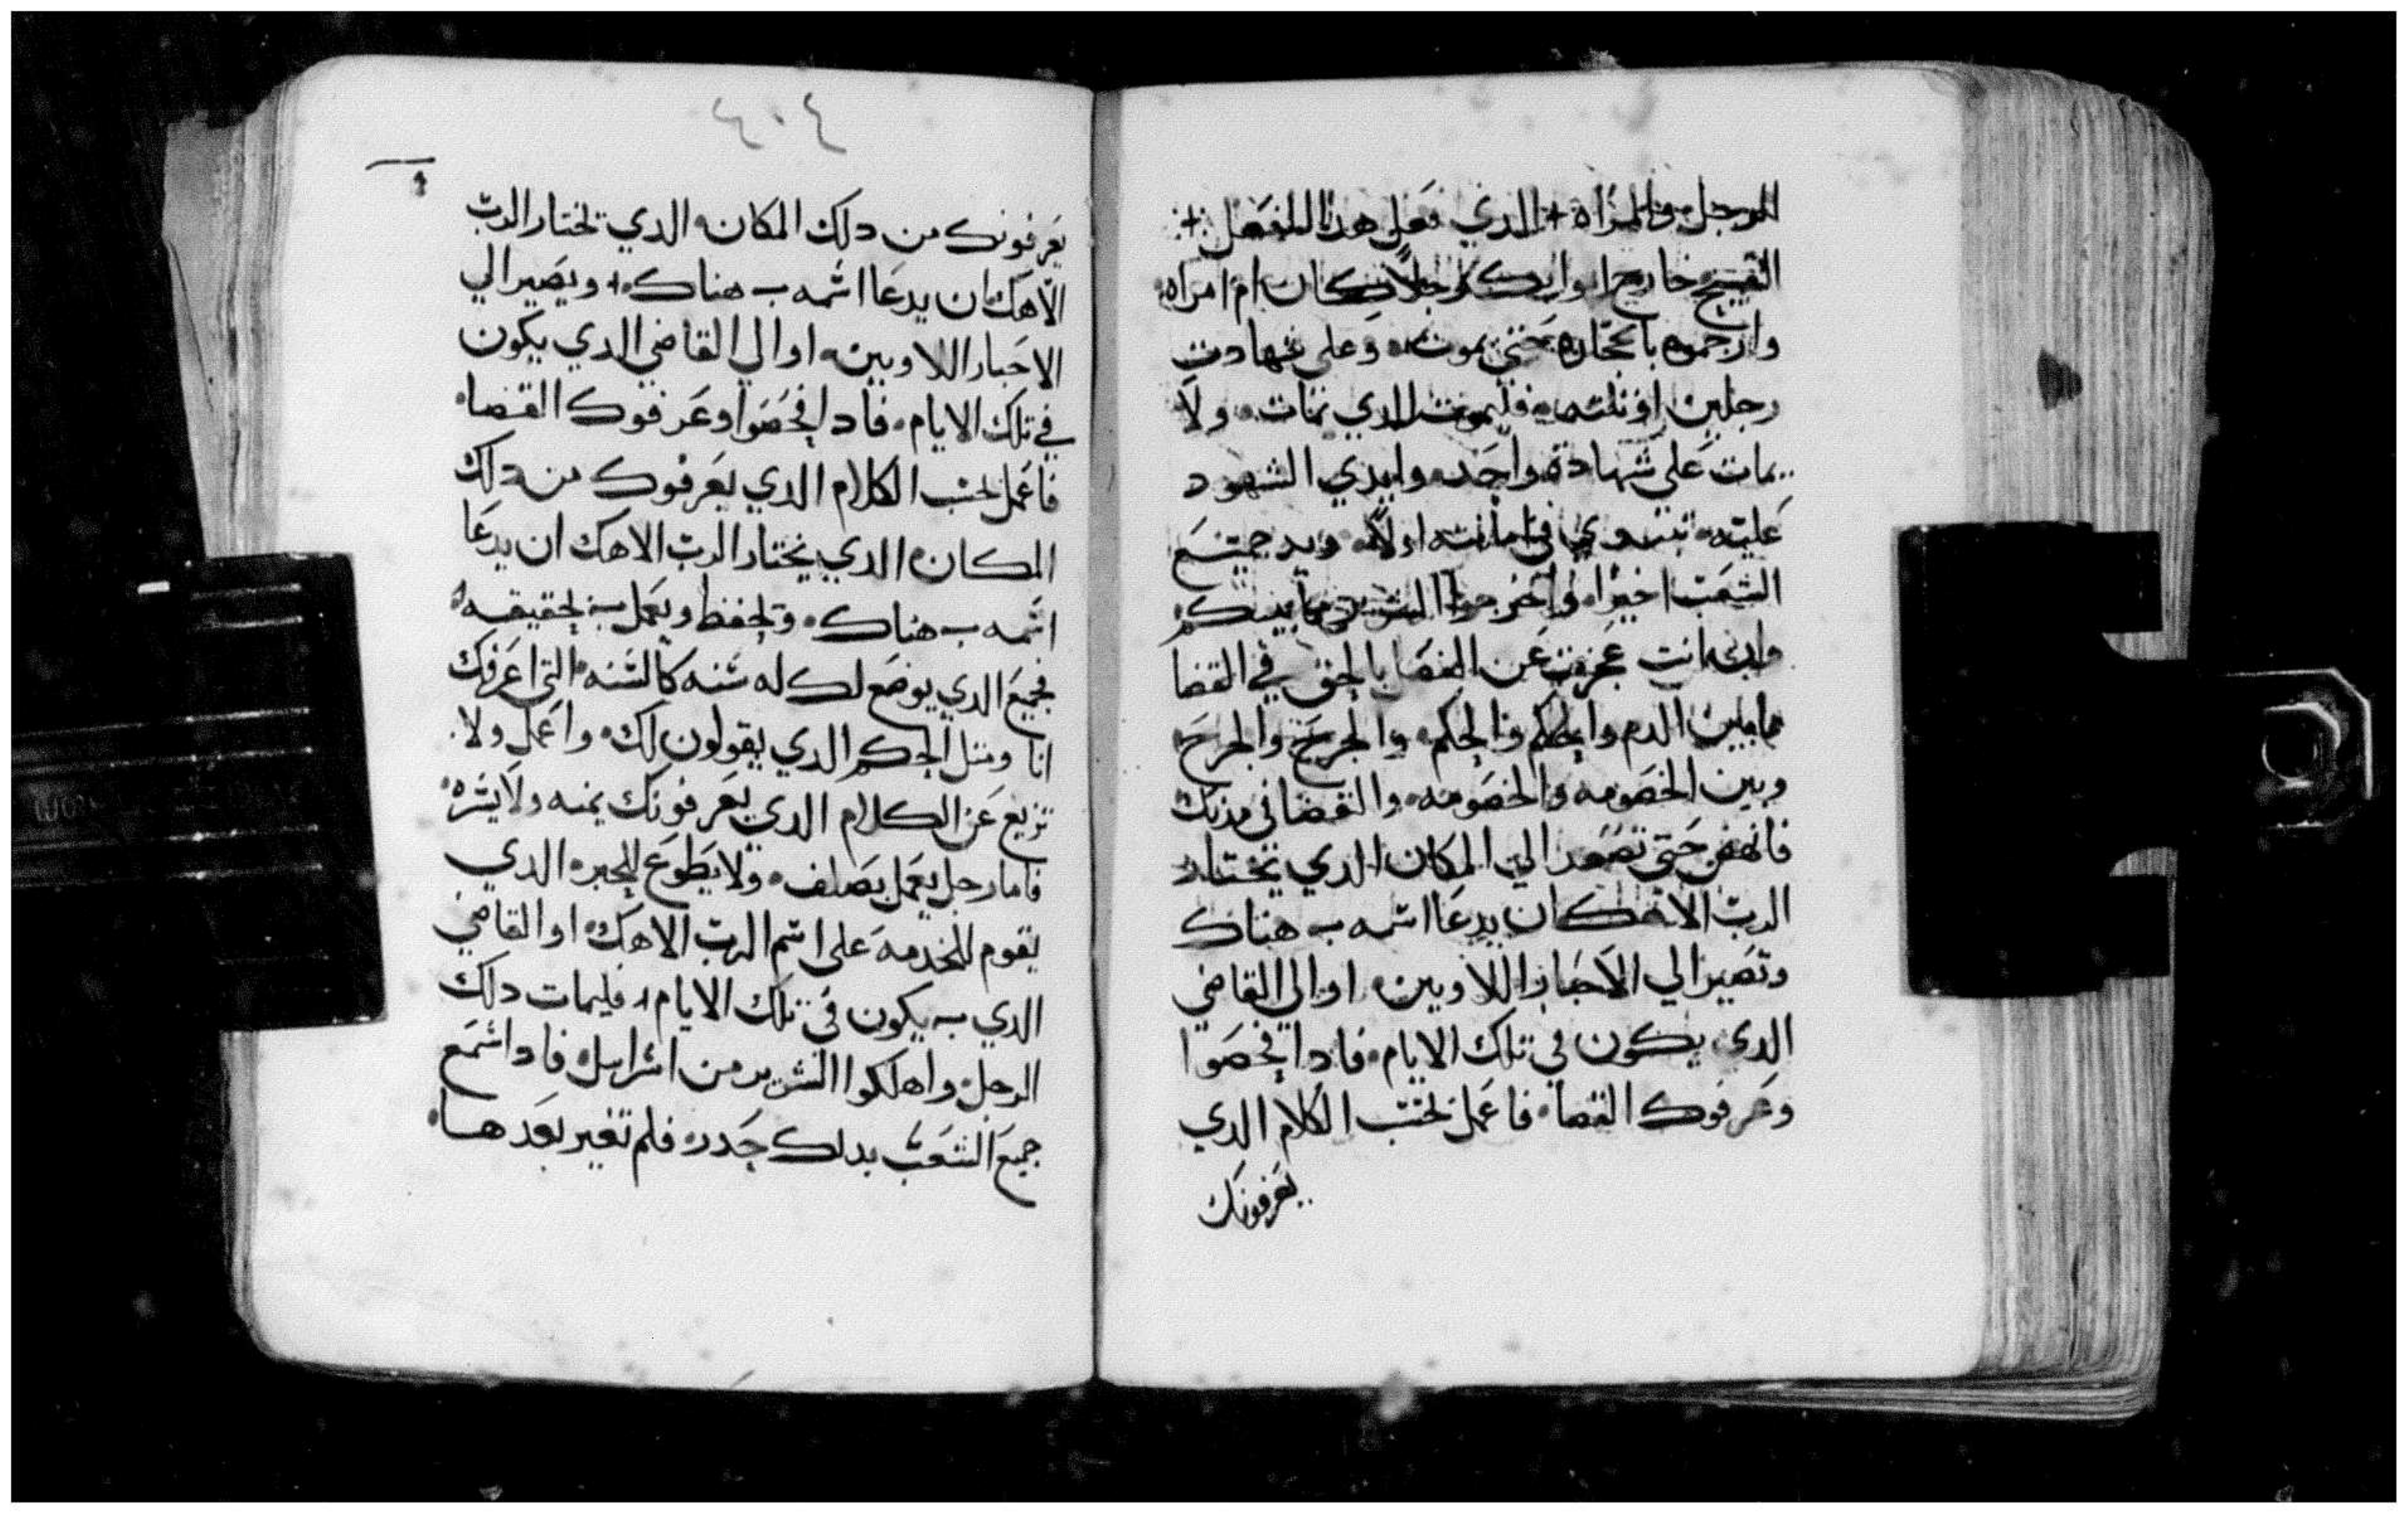 الرجل والمراه الدي فعل هدا الفعل
القبيح خارجا وان كان رجلا كان ام امراه
وارجموه بالحجاره حتي يموت وعلي شهادت
رجلين او تلته فليموت الدي يمات ولا
يمات علي شهادة واحد وايدي الشهود
عليه في اماتته اولا وجميع
الشعب اخيرا واخرجوا الشرير من بينكم
وان انت عجزت عن الفضا بالحق في القضا
ما بين الدم والحكم والحكم والجرح والجرح
وبين الخصومه والخصومه والقضا في مدنك
فانهض حتي تصعد الي المكان الدي يختار
الرب الاهك ان يدعا اسمه به هناك
وتصير الي الاحبار اللاويين او الي القاضي
الدي يكون في تلك الايام فادا فحصوا
وعرفوك القضا فاعمل بحسب الكلام الدي
يعرفونك
٤٠٤
يعرفونك من دلك المكان الدي يختار الرب
الاهك ان يدعا اسمه به هناك ويصير الي
الاحبار اللاويين او الي القاضي الدي يكون
في تلك الايام فادا فحصوا وعرفوك القضا
فاعمل بحسب الكلام الدي يعرفوك من دلك
المكان الدي يختار الرب الاهك ان يدعا
اسمه به هناك وتحفظ وتعمل به بحقيقه
فجميع الدي يوضع لك له سنه كالسنه التي اعرفك
انا ومتل الحكم الدي يقولون لك واعمل ولا
تزيع عن الكلام الدي يعرفونك يمنه ولا يسره
فاما رجل يعمل بصلف ولا يطوع للحبر الدي
يقوم للخدمه علي اسم الرب الاهك او القاضي
الدي به يكون في تلك الايام فليمات دلك
الرجل واهلكوا الشرير من اسراييل فادا سمع
جميع الشعب بدلك حدر فلم تغير بعدها